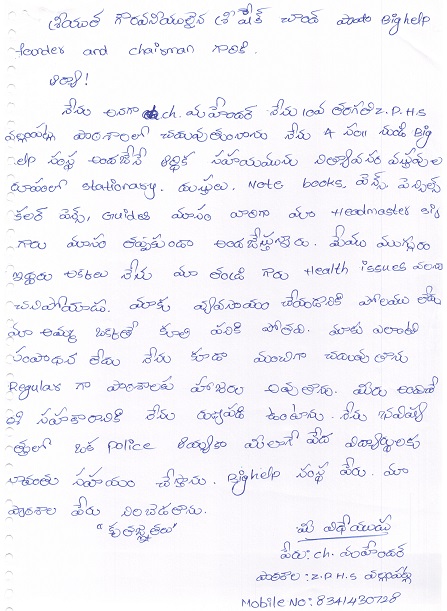 శ్రీయుత గౌరవనీయులైన శ్రీ షేక్ చాంద్ పాషా Bighelp
founder and chairman గారికి.
అయ్యా!
నేను అనగా ch. మహేందర్ నేను 10వ తరగతి Z.P.H.S
పాఠశాలలో చదువుతున్నాను నేను 4 సం॥ నుండి Big
elp సంస్థ అందజేసే ఆర్థిక సహాయమును నిత్యావసర వస్తువుల
రూపంలో stationary. దుస్తులు. Note books, పెన్స్, పెన్సిల్స్
కలర్ పెన్స్, Guides మాసం వారిగా మా Headmaster
గారు మాసం తప్పకుండా అందజేస్తున్నారు. మేము ముగ్గురం
ఇద్దరు అక్కలు నేను మా తండ్రి గారు Health issues వలన
చనిపోయాడు. మాకు వ్యవసాయం చేయడానికి పొలము లేదు
మా అమ్మ ఒక్కతే కూలి పనికి పోతది. మాకు ఎలాంటి
సంపాదన లేదు నేను కూడా మంచిగా చదువుతాను
Regular గా పాఠశాలకు హాజరు అవుతాను. మీరు అందించే
ఈ సహకారానికి నేను రుణపడి ఉంటాను. నేను భవిష్య
త్తులో ఒక police అయ్యాక మీలాగే పేద విద్యార్థులకు
నావంతు సహాయం చేస్తాను. Bighelp సంస్థ పేరు. మా
పాఠశాల పేరు నిలబెడతాను.
"కృతజ్ఞతలు"
మీ విధేయుడు
పేరు: ch. మహేందర్
పాఠశాల: Z.P.H.S
Mobile No: 8341430728